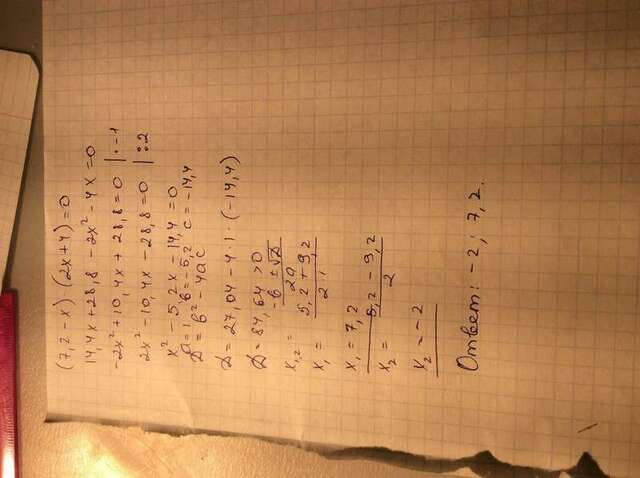 (7,2 - x) · (2x + 4) = 0
14,4x + 28,8 - 2x² - 4x = 0
-2x² + 10,4x + 28,8 = 0 | · -1
2x² - 10,4x - 28,8 = 0 | : 2
x² - 5,2x - 14,4 = 0
a = 1 b = -5,2 c = -14,4
D = b² - 4ac
D = 27,04 - 4 · 1 · (-14,4)
D = 84,64 > 0
x₁,₂ = (-b ± √D) / 2a
x₁ = (5,2 + 9,2) / 2·1
x₁ = 7,2
x₂ = (5,2 - 9,2) / 2
x₂ = -2
Ответ: -2; 7,2.